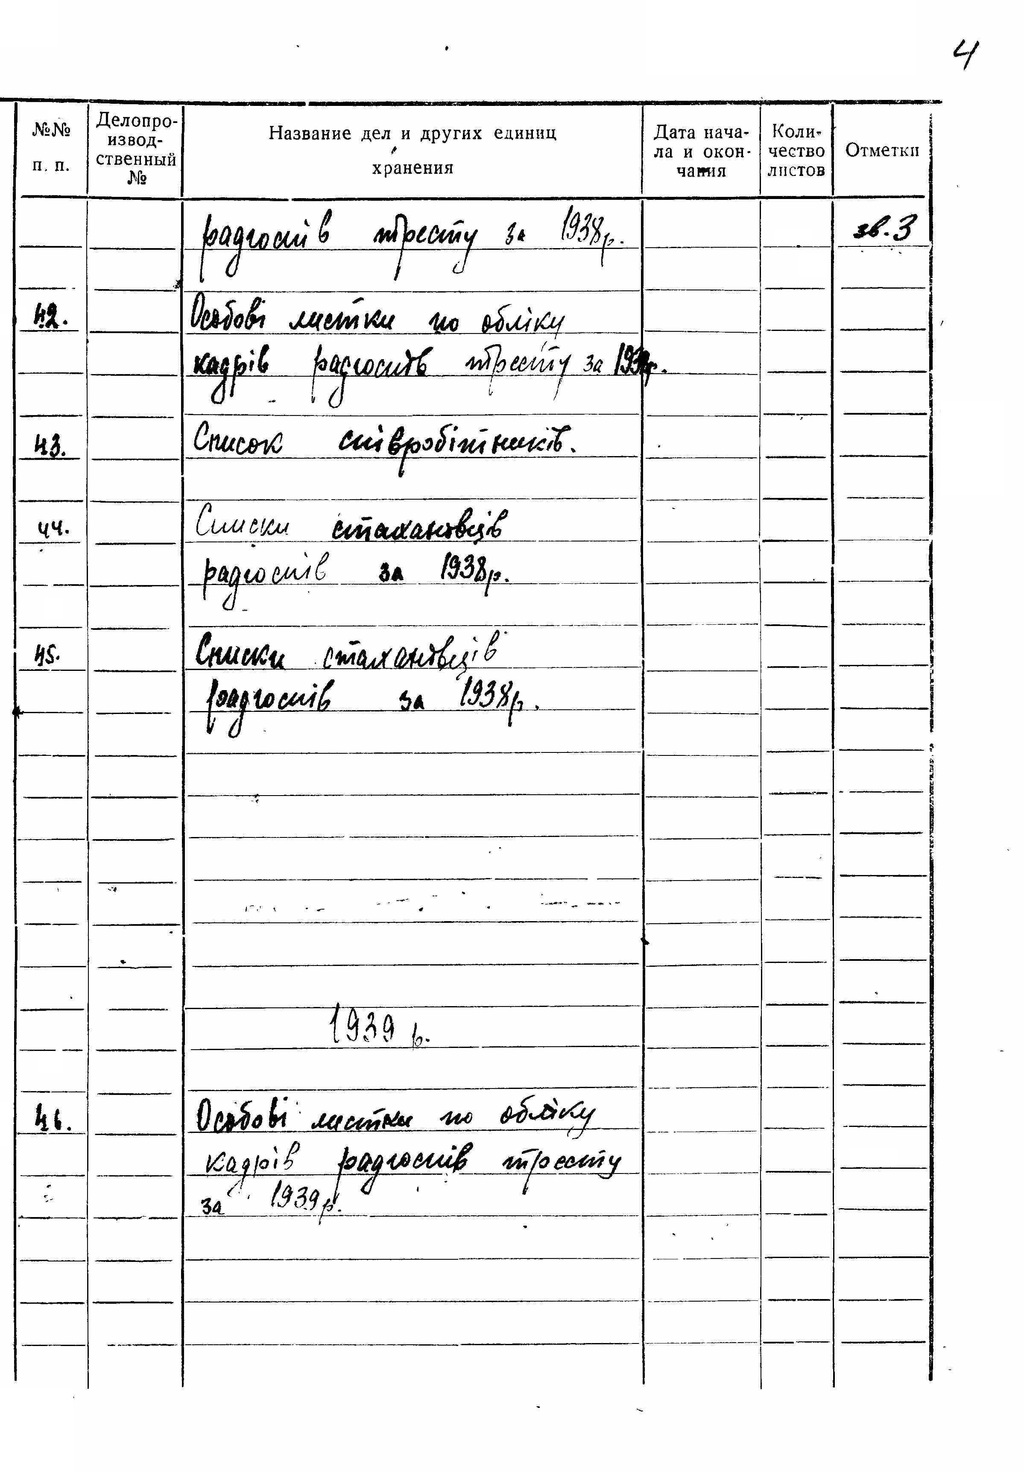 4
№№ п. п.
Делопро-
извод-
ственный
№
Название дел и других единиц
хранения
Дата нача-
ла и окон-
чания
Коли-
чество
листов
Отметки
радгоспів тресту за 1938р.
зв.3
42. Особові листки по обліку
кадрів радгоспів тресту за 1938р.
43. Список співробітників.
44. Списки стахановців
радгоспів за 1938р.
45. Списки стахановців
радгоспів за 1938р.
1939 р.
46. Особові листки по обліку
кадрів радгоспів тресту
за 1939р.